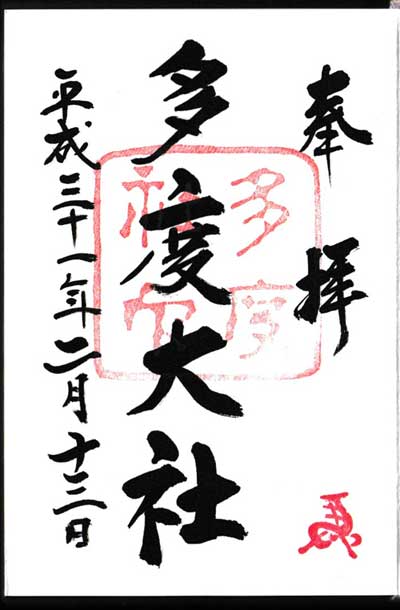 奉拝
多度大社
平成三十一年二月十三日
多度
神社